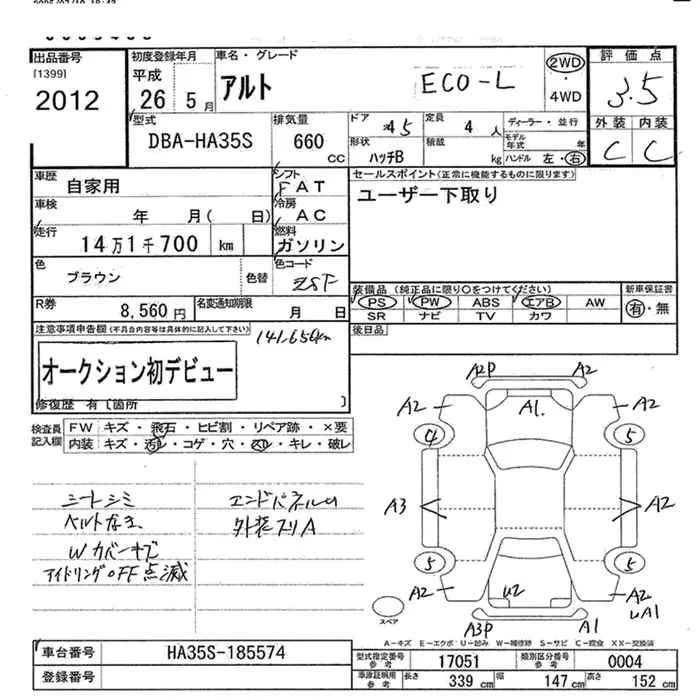 出品番号 初度登録年月 車名・グレード 評価点
[1399] 平成 アルト ECO-L 2WD 3.5
2012 26 5月 4WD
型式 排気量 ドア 45 定員 4人 ディーラー・並行 外装 内装
DBA-HA35S 660 CC 形状 ハッチB 積載 kg モデル年式 年 C C
ハンドル 左・右
車歴 自家用 シフト FAT セールスポイント(正常に機能するものに限ります)
車検 年 月( 日) 冷房 AC ユーザー下取り
走行 14万1千700 km 燃料 ガソリン
色 ブラウン 色替 色コード
装備品(純正品に限り○をつけてください) 新車保証書
R券 8,560円 名変通知期限 月 日 PS PW ABS エアB AW 有・無
SR ナビ TV カワ
注意事項申告欄(不具合内容等は具体的に記入して下さい) 141,656km 後日品
オークション初デビュー
修復歴 有[箇所 ]
検査員記入欄 FW キズ・飛石・ヒビ割・リペア跡・×要
内装 キズ・汚れ・コゲ・穴・スレ・キレ・破レ
A2P A2
A2 A1. A2
4 5
シートシミ エンドパネルU
ベルトなエ 外装スリA
A3 A2
Wカバーキズ
アイドリングOFF点滅
5 5
A2 U2 A2
A1
スペア A3P A1
A-キズ E-エクボ U-凹み W-補修跡 S-サビ C-腐食 XX-交換済
車台番号 HA35S-185574 型式指定番号 参考 17051 類別区分番号 参考 0004
登録番号 車庫証明用 参考 長さ 339 cm 幅 147 cm 高さ 152 cm